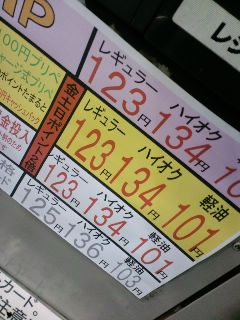 IP
レシ
100円プリペ
ャージ式プリペ
ポイントたまると
キャッシュバック
金投入
レギュラー ハイオク
123円 134円 10
金土日ポイント2倍
レギュラー ハイオク 軽油
123円 134円 101円
レギュラー ハイオク 軽油
123円 134円 101円
125円 136円 103円
カード。
注意